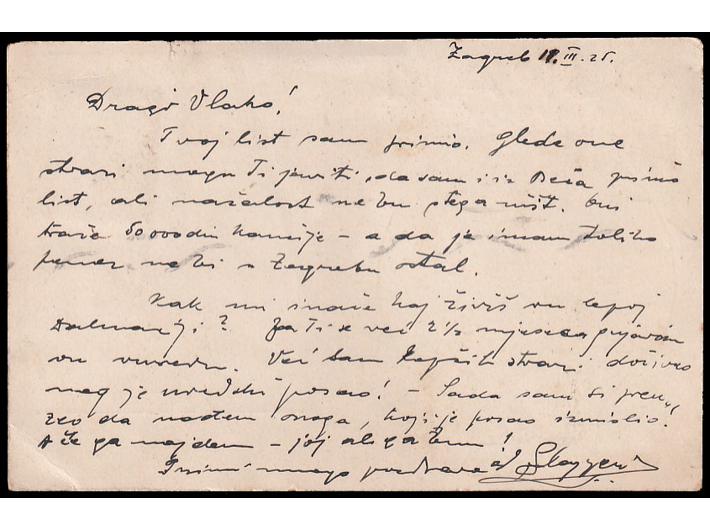 Zagreb 18. III. 25.
Dragi Vlaho!
Tvoj list sam primio. Glede one
stvari mogu Ti javiti, da sam i iz Beča primio
list, ali nažalost ne bu s tega ništ. Oni
traže 50 000 din kaucije – a da ja imam toliko
penez ne bi u Zagrebu ostal.
Kak mi inače kaj živiš vu lepoj
Dalmaciji? Ja Ti se već 2½ mjeseca
vu uredu. Već sam lepših stvari doživeo
neg je uredski posao! – Sada sam si preu-
zeo da nađem onoga, koji je posao izmislio.
A če ga najdem – joj ali ga bum!
Primi mnogo pozdrava od